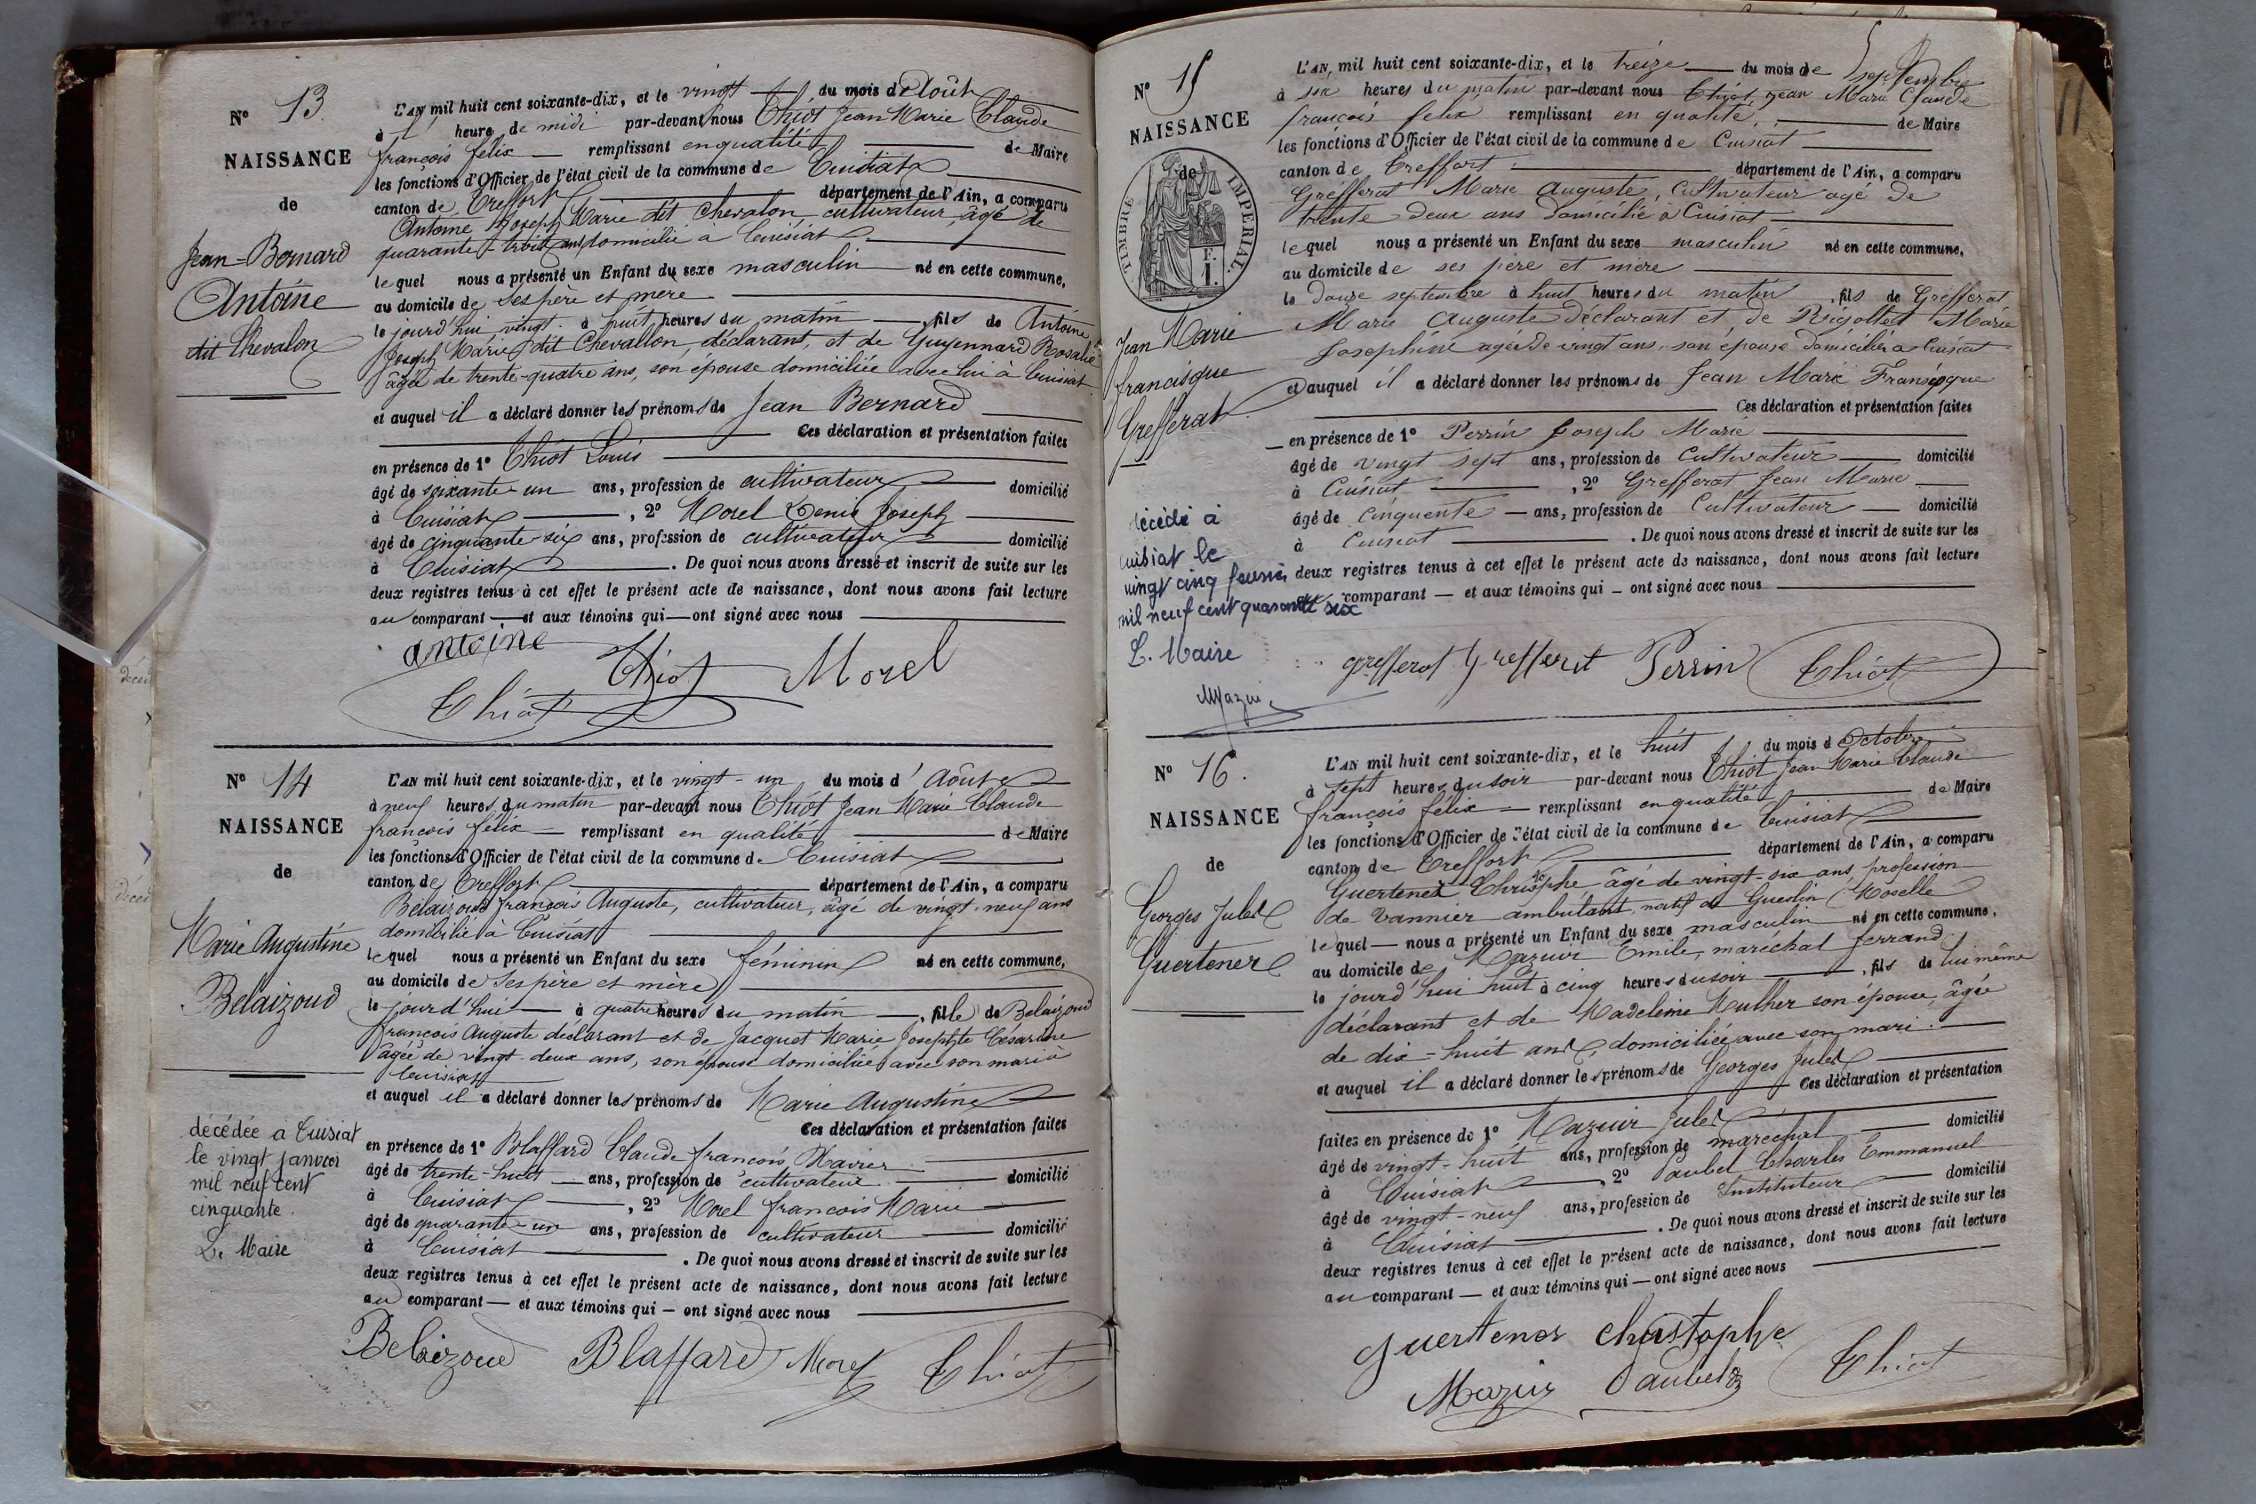 N° 13
NAISSANCE
de
Jean-Bernard
Antoine
dit Chevalon
L'AN mil huit cent soixante-dix, et le vingt du mois d'Août
à 1 heure de midi par-devant nous Thiot Jean Marie Claude
françois félix remplissant en qualité de Maire
les fonctions d'Officier de l'état civil de la commune de Cuisiat
canton de Treffort département de l'Ain, a comparu
Antoine Joseph Marie dit Chevalon, cultivateur, âgé de
quarante-trois ans domicilié à Cuisiat
lequel nous a présenté un Enfant du sexe masculin né en cette commune,
au domicile de ses père et mère
le jourd'hui vingt à huit heures du matin, fils de Antoine
Joseph Marie dit Chevallon, déclarant, et de Guyennard Rosalie
âgée de trente-quatre ans, son épouse domiciliée avec lui à Cuisiat
et auquel il a déclaré donner les prénoms de Jean Bernard
Ces déclaration et présentation faites
en présence de 1° Thiot Louis
âgé de soixante-un ans, profession de cultivateur domicilié
à Cuisiat, 2° Morel Denis Joseph
âgé de cinquante-six ans, profession de cultivateur domicilié
à Cuisiat. De quoi nous avons dressé et inscrit de suite sur les
deux registres tenus à cet effet le présent acte de naissance, dont nous avons fait lecture
au comparant et aux témoins qui ont signé avec nous
antoine Thiot Morel
Thiot
N° 14
NAISSANCE
de
Marie Augustine
Belaizoud
décédée a Cuisiat
le vingt janvier
mil neuf cent
cinquante.
Le Maire
L'AN mil huit cent soixante-dix, et le vingt-un du mois d'Août
à neuf heures du matin par-devant nous Thiot Jean Marie Claude
françois félix remplissant en qualité de Maire
les fonctions d'Officier de l'état civil de la commune de Cuisiat
canton de Treffort département de l'Ain, a comparu
Belaizoud françois Auguste, cultivateur, âgé de vingt-neuf ans
domicilié à Cuisiat
lequel nous a présenté un Enfant du sexe féminin né en cette commune,
au domicile de ses père et mère
le jourd'hui à quatre heures du matin, fille de Belaizoud
françois Auguste déclarant et de Jacquet Marie Josephte Césarine
âgée de vingt-deux ans, son épouse domiciliée avec son mari à
Cuisiat
et auquel il a déclaré donner les prénoms de Marie Augustine
Ces déclaration et présentation faites
en présence de 1° Blaffard Claude françois Xavier
âgé de trente-huit ans, profession de cultivateur domicilié
à Cuisiat, 2° Morel françois Marie
âgé de quarante-un ans, profession de cultivateur domicilié
à Cuisiat. De quoi nous avons dressé et inscrit de suite sur les
deux registres tenus à cet effet le présent acte de naissance, dont nous avons fait lecture
au comparant et aux témoins qui ont signé avec nous
Belaizoud Blaffard Morel Thiot
N° 15
NAISSANCE
de
TIMBRE IMPERIAL.
1 F.
Jean Marie
francisque
Grefferat
décédé à
Cuisiat le
vingt cinq fevrier
mil neuf cent quarante six
L. Maire
Mazuir
L'AN mil huit cent soixante-dix, et le treize du mois de septembre
à six heures du matin par-devant nous Thiot, Jean Marie Claude
françois felix remplissant en qualité, de Maire
les fonctions d'Officier de l'état civil de la commune de Cuisiat
canton de Treffort département de l'Ain, a comparu
Grefferat Marie Auguste, Cultivateur agé de
trente deux ans domicilié à Cuisiat
lequel nous a présenté un Enfant du sexe masculin né en cette commune,
au domicile de ses père et mère
le douze septembre à huit heures du matin, fils de Grefferat
Marie Auguste déclarant et de Rigollet Marie
Josephine agée de vingt ans, son épouse domiciliée a Cuisiat
et auquel il a déclaré donner les prénoms de Jean Marie Francisque
Ces déclaration et présentation faites
en présence de 1° Perrin Joseph Marie
âgé de vingt sept ans, profession de Cultivateur domicilié
à Cuisiat, 2° Grefferat Jean Marie
âgé de cinquente ans, profession de Cultivateur domicilié
à Cuisiat. De quoi nous avons dressé et inscrit de suite sur les
deux registres tenus à cet effet le présent acte de naissance, dont nous avons fait lecture
au comparant et aux témoins qui ont signé avec nous
grefferat Grefferat Perrin Thiot
N° 16.
NAISSANCE
de
Georges Jules
Guertener
L'AN mil huit cent soixante-dix, et le huit du mois d'Octobre
à sept heures du soir par-devant nous Thiot Jean Marie Claude
françois félix remplissant en qualité de Maire
les fonctions d'Officier de l'état civil de la commune de Cuisiat
canton de Treffort département de l'Ain, a comparu
Guertener Christophe âgé de vingt-six ans, profession
de Vannier ambulant, natif de Gueslin (Moselle)
lequel nous a présenté un Enfant du sexe masculin né en cette commune,
au domicile de Mazuir Emile, maréchal ferrand
le jourd'hui huit à cinq heures du soir, fils de lui même
déclarant et de Madeleine Mulher son épouse, âgée
de dix-huit ans, domiciliée avec son mari.
et auquel il a déclaré donner les prénoms de Georges Jules
Ces déclaration et présentation
faites en présence de 1° Mazuir Jules
âgé de vingt-huit ans, profession de maréchal domicilié
à Cuisiat, 2° Paubel Charles Emmanuel
âgé de vingt-neuf ans, profession de Instituteur domicilié
à Cuisiat. De quoi nous avons dressé et inscrit de suite sur les
deux registres tenus à cet effet le présent acte de naissance, dont nous avons fait lecture
au comparant et aux témoins qui ont signé avec nous
guertener christophe
Mazuir Paubel Thiot